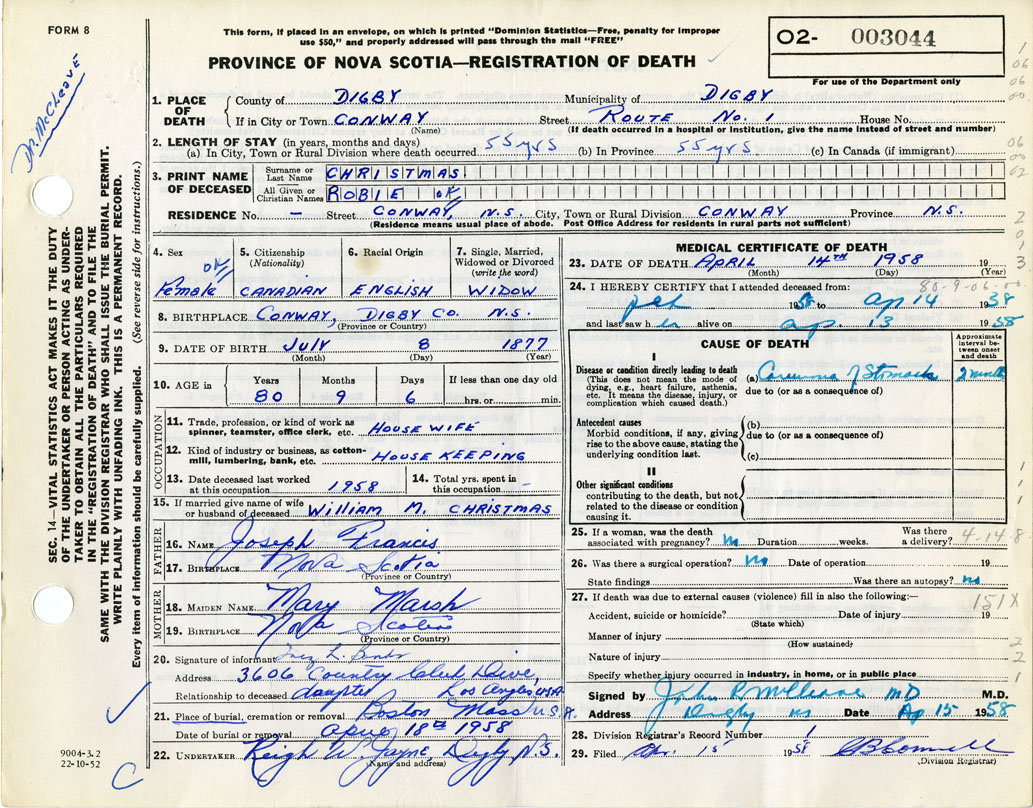 FORM 8
This form, if placed in an envelope, on which is printed "Dominion Statistics—Free, penalty for improper
use $50," and properly addressed will pass through the mail "FREE"
O2- 003044
For use of the Department only
PROVINCE OF NOVA SCOTIA—REGISTRATION OF DEATH
Dr. McCleave
SEC. 14—VITAL STATISTICS ACT MAKES IT THE DUTY
OF THE UNDERTAKER OR PERSON ACTING AS UNDER-
TAKER TO OBTAIN ALL THE PARTICULARS REQUIRED
IN THE "REGISTRATION OF DEATH" AND TO FILE THE
SAME WITH THE DIVISION REGISTRAR WHO SHALL ISSUE THE BURIAL PERMIT.
WRITE PLAINLY WITH UNFADING INK. THIS IS A PERMANENT RECORD.
Every item of information should be carefully supplied. (See reverse side for instructions.)
1. PLACE OF DEATH
County of DIGBY Municipality of DIGBY
If in City or Town CONWAY Street ROUTE No. 1 House No.
(Name) (If death occurred in a hospital or institution, give the name instead of street and number)
2. LENGTH OF STAY (in years, months and days)
(a) In City, Town or Rural Division where death occurred 55 yrs (b) In Province 55 yrs. (c) In Canada (if immigrant)
3. PRINT NAME OF DECEASED
Surname or Last Name CHRISTMAS
All Given or Christian Names ROBIE OK
RESIDENCE No. – Street CONWAY, N.S. City, Town or Rural Division CONWAY Province N.S.
(Residence means usual place of abode. Post Office Address for residents in rural parts not sufficient)
4. Sex OK Female
5. Citizenship (Nationality) CANADIAN
6. Racial Origin ENGLISH
7. Single, Married, Widowed or Divorced (write the word) WIDOW
8. BIRTHPLACE CONWAY, DIGBY CO. N.S.
(Province or Country)
9. DATE OF BIRTH JULY 8 1877
(Month) (Day) (Year)
10. AGE in Years Months Days If less than one day old
80 9 6 hrs. or min.
OCCUPATION
11. Trade, profession, or kind of work as
spinner, teamster, office clerk, etc. HOUSE WIFE
12. Kind of industry or business, as cotton-
mill, lumbering, bank, etc. HOUSE KEEPING
13. Date deceased last worked at this occupation 1958
14. Total yrs. spent in this occupation –
15. If married give name of wife
or husband of deceased WILLIAM M. CHRISTMAS
FATHER
16. NAME Joseph Francis
17. BIRTHPLACE Nova Scotia
(Province or Country)
MOTHER
18. MAIDEN NAME Mary Marsh
19. BIRTHPLACE Nova Scotia
(Province or Country)
20. Signature of informant
Address 3606 Country Club Drive,
Relationship to deceased daughter Los Angles USA
21. Place of burial, cremation or removal Boston Mass U.S.A.
Date of burial or removal April 18th 1958
22. UNDERTAKER Digby, N.S.
(Name and address)
9004-3.2
22-10-52
C
MEDICAL CERTIFICATE OF DEATH
23. DATE OF DEATH APRIL 14TH 1958 19
(Month) (Day) (Year)
80-9-06-00
24. I HEREBY CERTIFY that I attended deceased from:
Feb 1958 to Ap 14 1958
and last saw her alive on Ap. 13 1958
CAUSE OF DEATH
Approximate interval between onset and death
I
Disease or condition directly leading to death
(This does not mean the mode of
dying, e.g., heart failure, asthenia,
etc. It means the disease, injury, or
complication which caused death.)
(a) Carcinoma of Stomach 2 months
due to (or as a consequence of)
Antecedent causes
Morbid conditions, if any, giving
rise to the above cause, stating the
underlying condition last.
(b)
due to (or as a consequence of)
(c)
II
Other significant conditions
contributing to the death, but not
related to the disease or condition
causing it.
25. If a woman, was the death Was there
associated with pregnancy? No Duration weeks. a delivery? 4-14-8
26. Was there a surgical operation? No Date of operation 19
State findings Was there an autopsy? No
27. If death was due to external causes (violence) fill in also the following:—
151X
Accident, suicide or homicide? Date of injury 19
(State which)
Manner of injury
(How sustained)
Nature of injury
Specify whether injury occurred in industry, in home, or in public place
Signed by John R McCleave MD M.D.
Address Digby NS Date Ap 15 1958
28. Division Registrar's Record Number 1
29. Filed Apr. 15 1958
(Division Registrar)